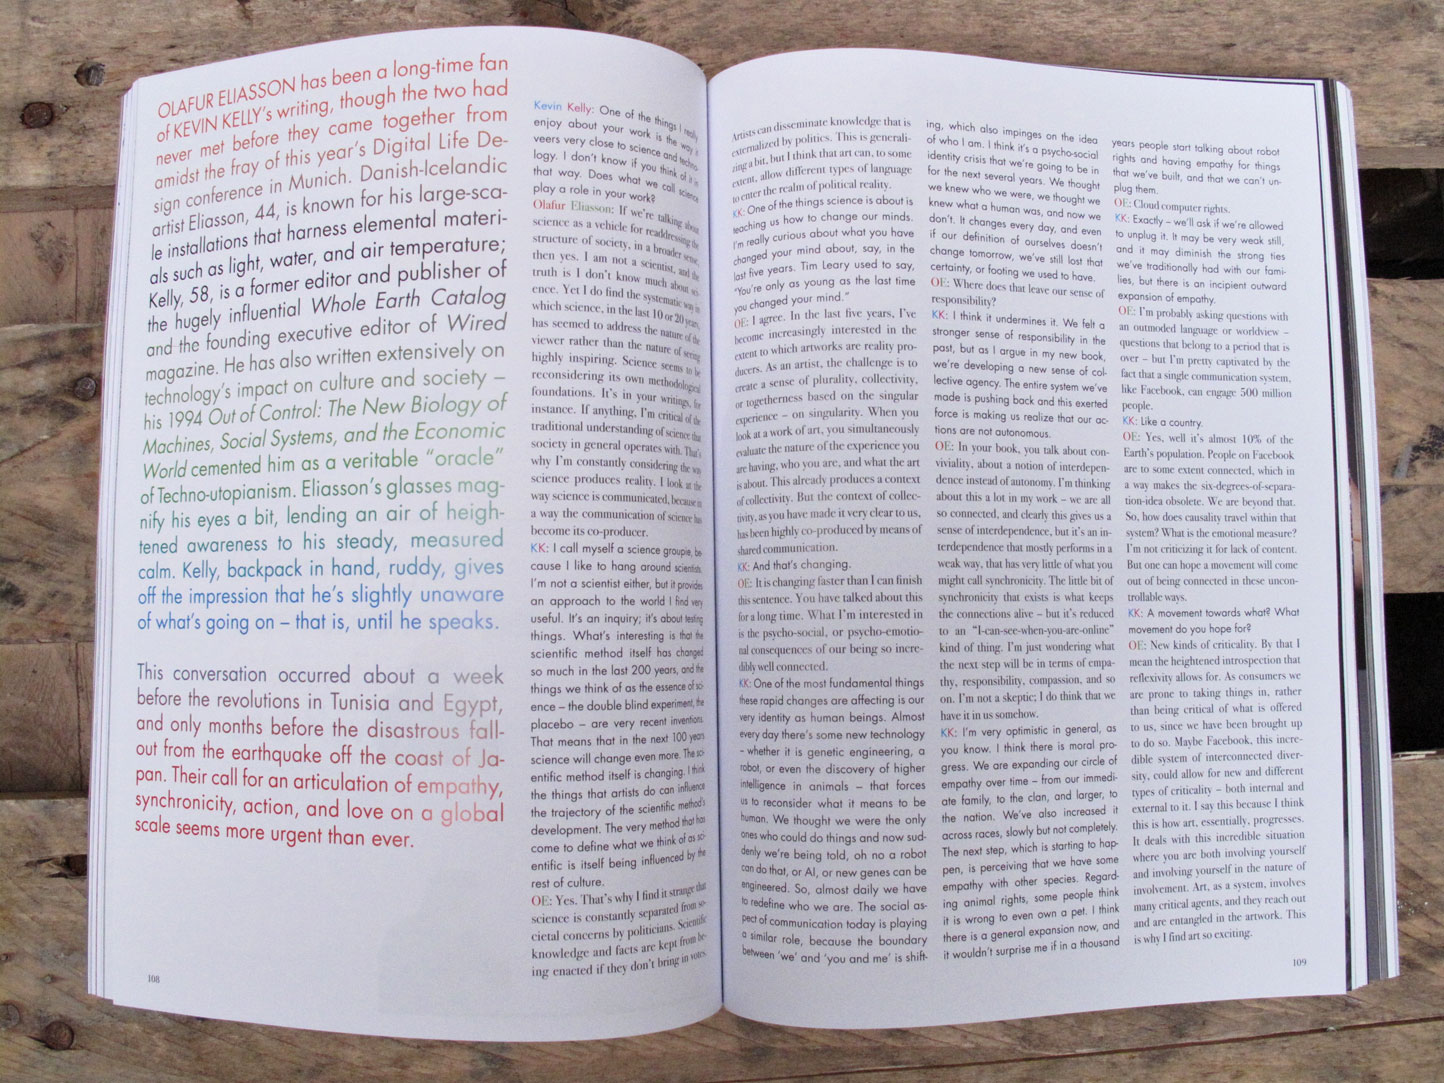 OLAFUR ELIASSON has been a long-time fan
of KEVIN KELLY's writing, though the two had
never met before they came together from
amidst the fray of this year's Digital Life De-
sign conference in Munich. Danish-Icelandic
artist Eliasson, 44, is known for his large-sca-
le installations that harness elemental materi-
als such as light, water, and air temperature;
Kelly, 58, is a former editor and publisher of
the hugely influential Whole Earth Catalog
and the founding executive editor of Wired
magazine. He has also written extensively on
technology's impact on culture and society –
his 1994 Out of Control: The New Biology of
Machines, Social Systems, and the Economic
World cemented him as a veritable "oracle"
of Techno-utopianism. Eliasson's glasses mag-
nify his eyes a bit, lending an air of heigh-
tened awareness to his steady, measured
calm. Kelly, backpack in hand, ruddy, gives
off the impression that he's slightly unaware
of what's going on – that is, until he speaks.
This conversation occurred about a week
before the revolutions in Tunisia and Egypt,
and only months before the disastrous fall-
out from the earthquake off the coast of Ja-
pan. Their call for an articulation of empathy,
synchronicity, action, and love on a global
scale seems more urgent than ever.
108
Kevin Kelly: One of the things I really
enjoy about your work is the way it
veers very close to science and techno-
logy. I don't know if you think of it in
that way. Does what we call science
play a role in your work?
Olafur Eliasson: If we're talking about
science as a vehicle for readdressing the
structure of society, in a broader sense,
then yes. I am not a scientist, and the
truth is I don't know much about sci-
ence. Yet I do find the systematic way in
which science, in the last 10 or 20 years,
has seemed to address the nature of the
viewer rather than the nature of seeing
highly inspiring. Science seems to be
reconsidering its own methodological
foundations. It's in your writings, for
instance. If anything, I'm critical of the
traditional understanding of science that
society in general operates with. That's
why I'm constantly considering the way
science produces reality. I look at the
way science is communicated, because in
a way the communication of science has
become its co-producer.
KK: I call myself a science groupie, be-
cause I like to hang around scientists.
I'm not a scientist either, but it provides
an approach to the world I find very
useful. It's an inquiry; it's about testing
things. What's interesting is that the
scientific method itself has changed
so much in the last 200 years, and the
things we think of as the essence of sci-
ence – the double blind experiment, the
placebo – are very recent inventions.
That means that in the next 100 years
science will change even more. The sci-
entific method itself is changing. I think
the things that artists do can influence
the trajectory of the scientific method's
development. The very method that has
come to define what we think of as sci-
entific is itself being influenced by the
rest of culture.
OE: Yes. That's why I find it strange that
science is constantly separated from so-
cietal concerns by politicians. Scientific
knowledge and facts are kept from be-
ing enacted if they don't bring in votes.
Artists can disseminate knowledge that is
externalized by politics. This is generali-
zing a bit, but I think that art can, to some
extent, allow different types of language
to enter the realm of political reality.
KK: One of the things science is about is
teaching us how to change our minds.
I'm really curious about what you have
changed your mind about, say, in the
last five years. Tim Leary used to say,
"You're only as young as the last time
you changed your mind."
OE: I agree. In the last five years, I've
become increasingly interested in the
extent to which artworks are reality pro-
ducers. As an artist, the challenge is to
create a sense of plurality, collectivity,
or togetherness based on the singular
experience – on singularity. When you
look at a work of art, you simultaneously
evaluate the nature of the experience you
are having, who you are, and what the art
is about. This already produces a context
of collectivity. But the context of collec-
tivity, as you have made it very clear to us,
has been highly co-produced by means of
shared communication.
KK: And that's changing.
OE: It is changing faster than I can finish
this sentence. You have talked about this
for a long time. What I'm interested in
is the psycho-social, or psycho-emotio-
nal consequences of our being so incre-
dibly well connected.
KK: One of the most fundamental things
these rapid changes are affecting is our
very identity as human beings. Almost
every day there's some new technology
– whether it is genetic engineering, a
robot, or even the discovery of higher
intelligence in animals – that forces
us to reconsider what it means to be
human. We thought we were the only
ones who could do things and now sud-
denly we're being told, oh no a robot
can do that, or AI, or new genes can be
engineered. So, almost daily we have
to redefine who we are. The social as-
pect of communication today is playing
a similar role, because the boundary
between 'we' and 'you and me' is shift-
ing, which also impinges on the idea
of who I am. I think it's a psycho-social
identity crisis that we're going to be in
for the next several years. We thought
we knew who we were, we thought we
knew what a human was, and now we
don't. It changes every day, and even
if our definition of ourselves doesn't
change tomorrow, we've still lost that
certainty, or footing we used to have.
OE: Where does that leave our sense of
responsibility?
KK: I think it undermines it. We felt a
stronger sense of responsibility in the
past, but as I argue in my new book,
we're developing a new sense of col-
lective agency. The entire system we've
made is pushing back and this exerted
force is making us realize that our ac-
tions are not autonomous.
OE: In your book, you talk about con-
viviality, about a notion of interdepen-
dence instead of autonomy. I'm thinking
about this a lot in my work – we are all
so connected, and clearly this gives us a
sense of interdependence, but it's an in-
terdependence that mostly performs in a
weak way, that has very little of what you
might call synchronicity. The little bit of
synchronicity that exists is what keeps
the connections alive – but it's reduced
to an "I-can-see-when-you-are-online"
kind of thing. I'm just wondering what
the next step will be in terms of empa-
thy, responsibility, compassion, and so
on. I'm not a skeptic; I do think that we
have it in us somehow.
KK: I'm very optimistic in general, as
you know. I think there is moral pro-
gress. We are expanding our circle of
empathy over time – from our immedi-
ate family, to the clan, and larger, to
the nation. We've also increased it
across races, slowly but not completely.
The next step, which is starting to hap-
pen, is perceiving that we have some
empathy with other species. Regard-
ing animal rights, some people think
it is wrong to even own a pet. I think
there is a general expansion now, and
it wouldn't surprise me if in a thousand
years people start talking about robot
rights and having empathy for things
that we've built, and that we can't un-
plug them.
OE: Cloud computer rights.
KK: Exactly – we'll ask if we're allowed
to unplug it. It may be very weak still,
and it may diminish the strong ties
we've traditionally had with our fami-
lies, but there is an incipient outward
expansion of empathy.
OE: I'm probably asking questions with
an outmoded language or worldview –
questions that belong to a period that is
over – but I'm pretty captivated by the
fact that a single communication system,
like Facebook, can engage 500 million
people.
KK: Like a country.
OE: Yes, well it's almost 10% of the
Earth's population. People on Facebook
are to some extent connected, which in
a way makes the six-degrees-of-separa-
tion-idea obsolete. We are beyond that.
So, how does causality travel within that
system? What is the emotional measure?
I'm not criticizing it for lack of content.
But one can hope a movement will come
out of being connected in these uncon-
trollable ways.
KK: A movement towards what? What
movement do you hope for?
OE: New kinds of criticality. By that I
mean the heightened introspection that
reflexivity allows for. As consumers we
are prone to taking things in, rather
than being critical of what is offered
to us, since we have been brought up
to do so. Maybe Facebook, this incre-
dible system of interconnected diver-
sity, could allow for new and different
types of criticality – both internal and
external to it. I say this because I think
this is how art, essentially, progresses.
It deals with this incredible situation
where you are both involving yourself
and involving yourself in the nature of
involvement. Art, as a system, involves
many critical agents, and they reach out
and are entangled in the artwork. This
is why I find art so exciting.
109